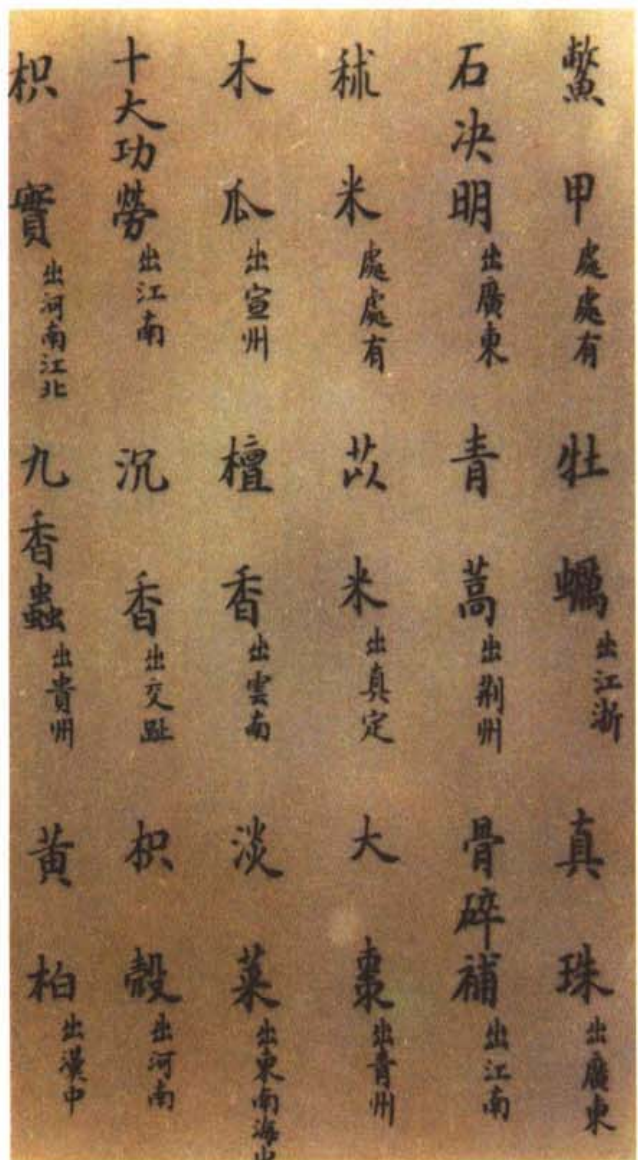 鱉甲處處有 牡蠣出江浙 真珠出廣東
石决明出廣東 青蒿出荆州 骨碎補出江南
秫米處處有 苡米出真定 大棗出青州
木瓜出宣州 檀香出雲南 淡菜出東南海
十大功勞出江南 沉香出交趾 枳殼出河南
枳實出河南江北 九香蟲出貴州 黃柏出漢中